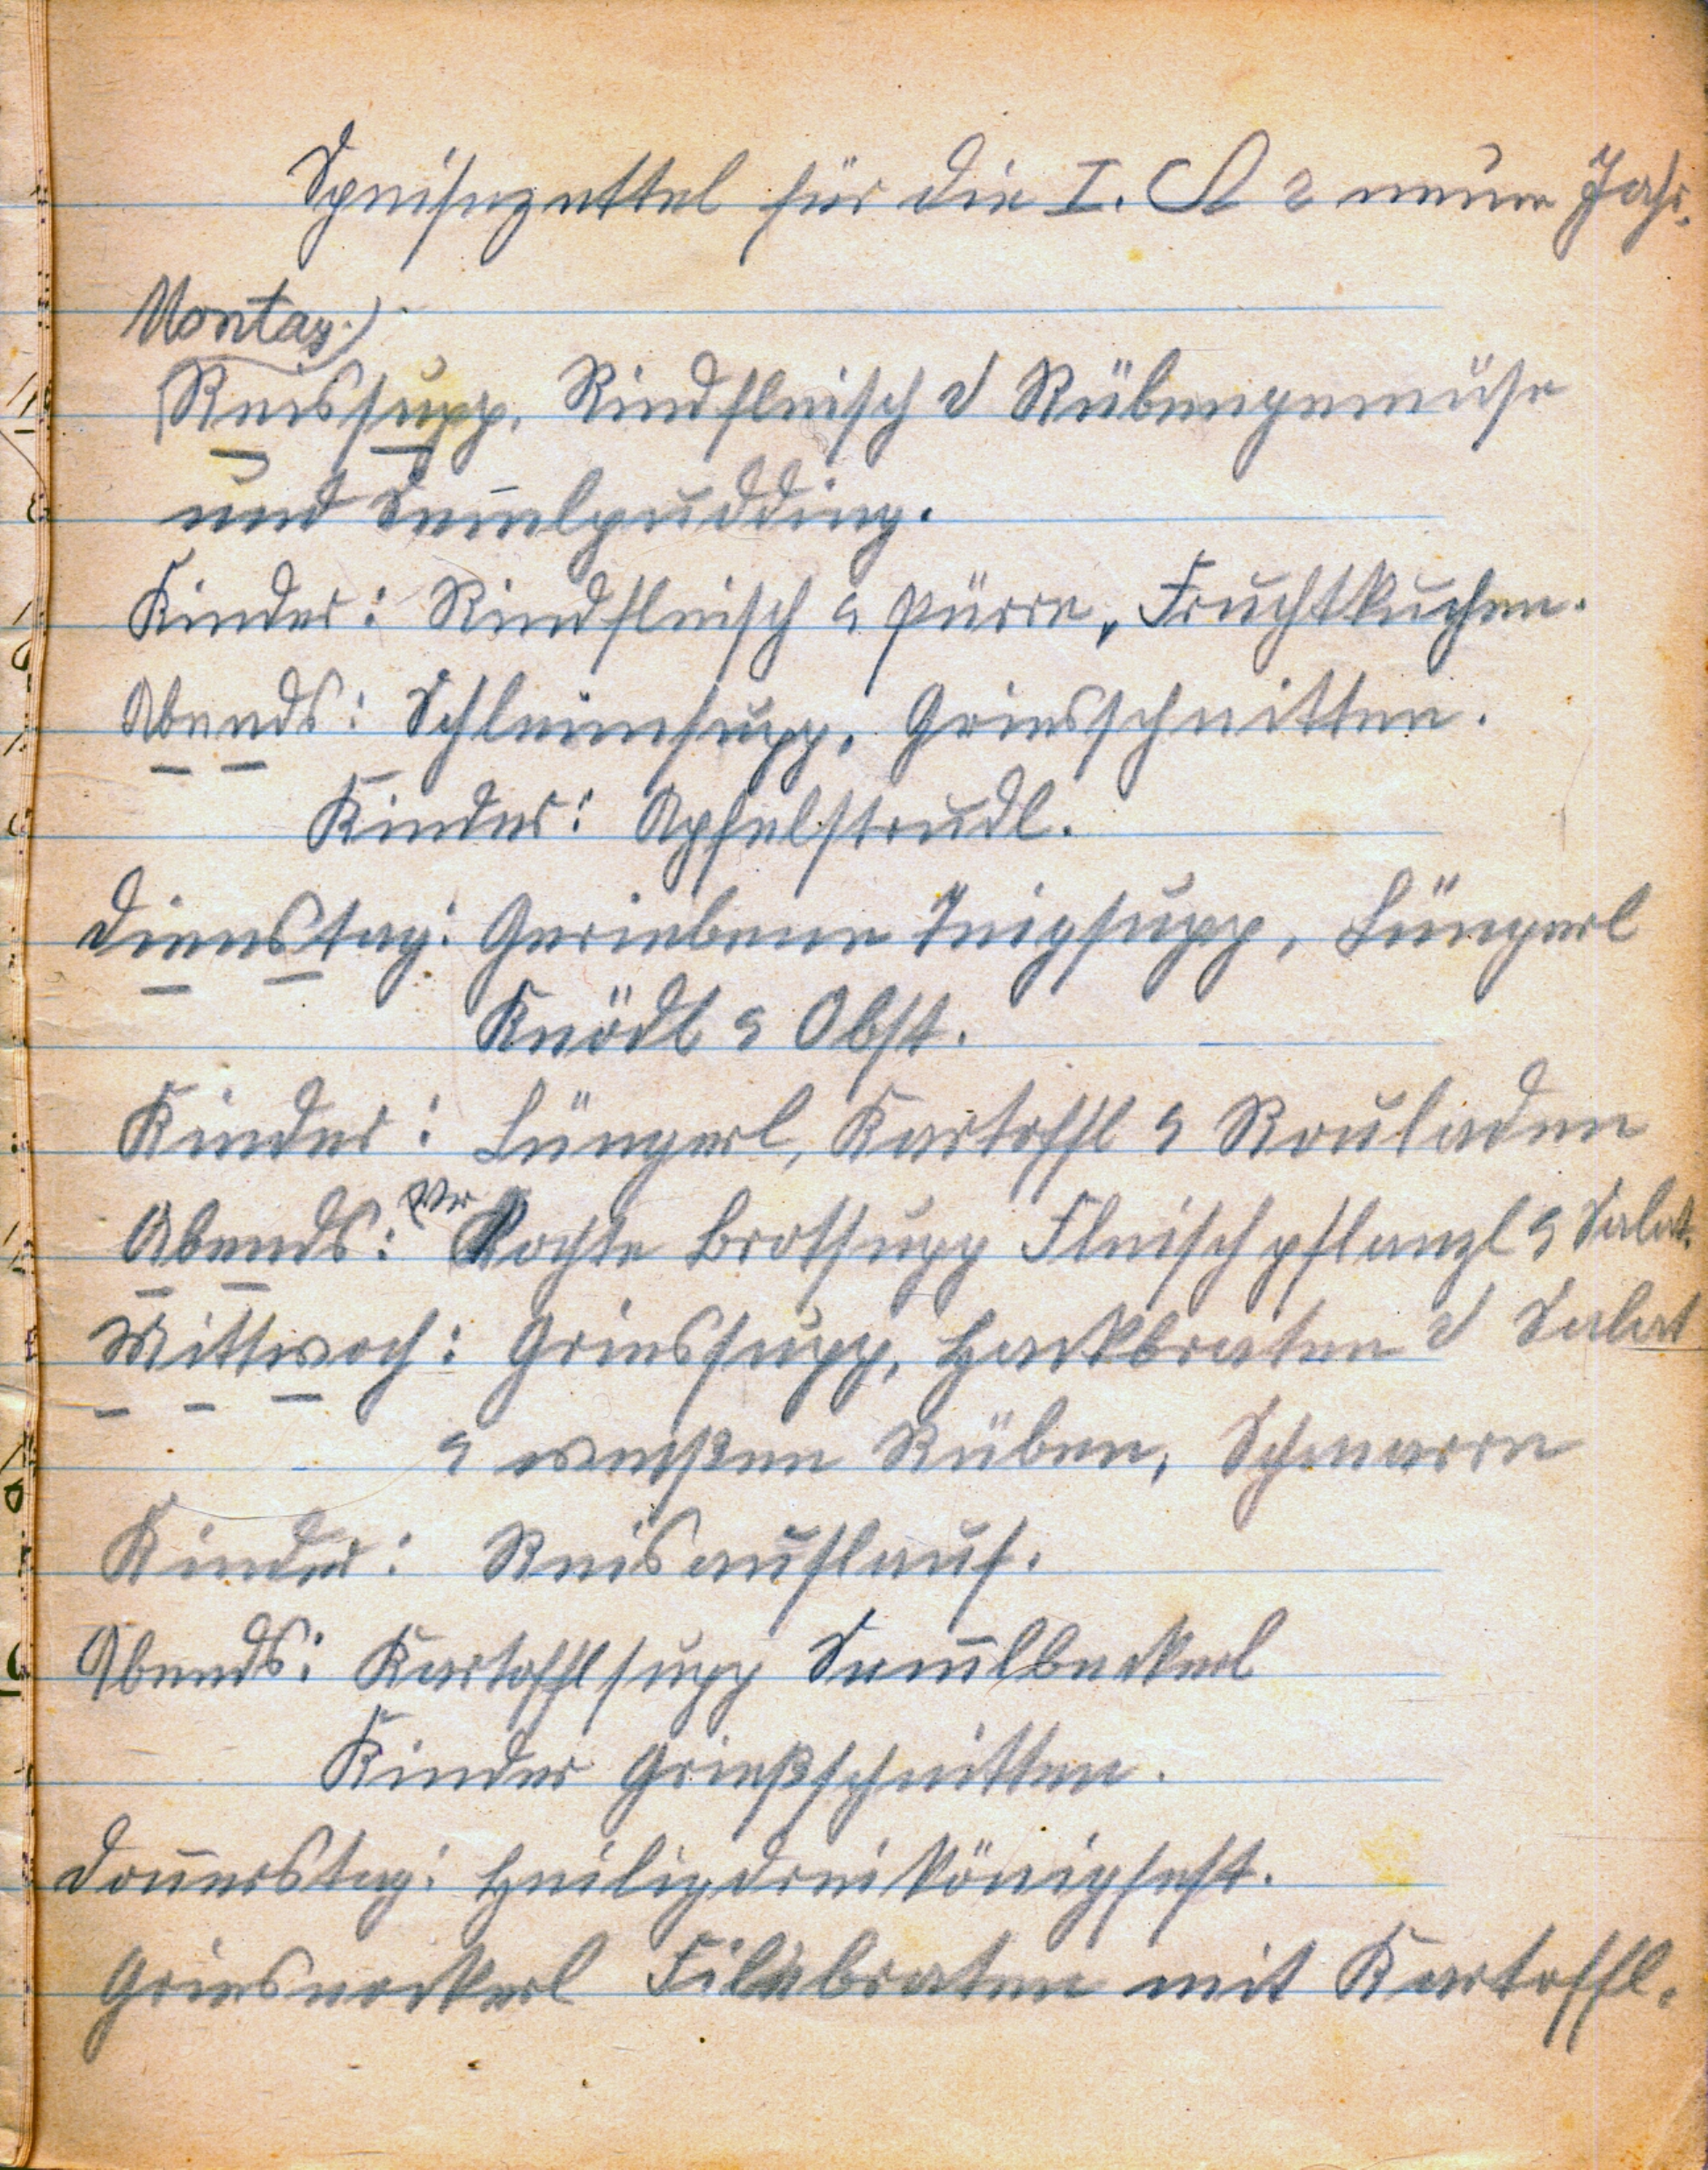 Speisezettel für die I. A 2 neue Jahr.
Montag.)
Reissupp, Rindfleisch d Rübengemüse
und Sem̄elpudding.
Kinder: Rindfleisch & Pürre, Fruchtkuchen.
Abends: Schleimsupp, Griesschnitten.
Kinder: Apfelstrudl.
Dienstag: Geriebene Teigsupp, Lüngerl
Knödl & Obst.
Kinder: Lüngerl, Kartoffl & Rouladen
Abends: Ver Kochte Brotsupp Fleischpflanzl & Salat.
Mittwoch: Griessupp, Hackbraten d Salat
& weißen Rüben, Schmarrn
Kinder: Reisauflauf.
Abends: Kartofflsupp Sem̄lbackerl
Kinder Grießschnitten.
Don̄erstag: Heiligdreikönigfest.
Griesnockerl Filebraten mit Kartoffl.